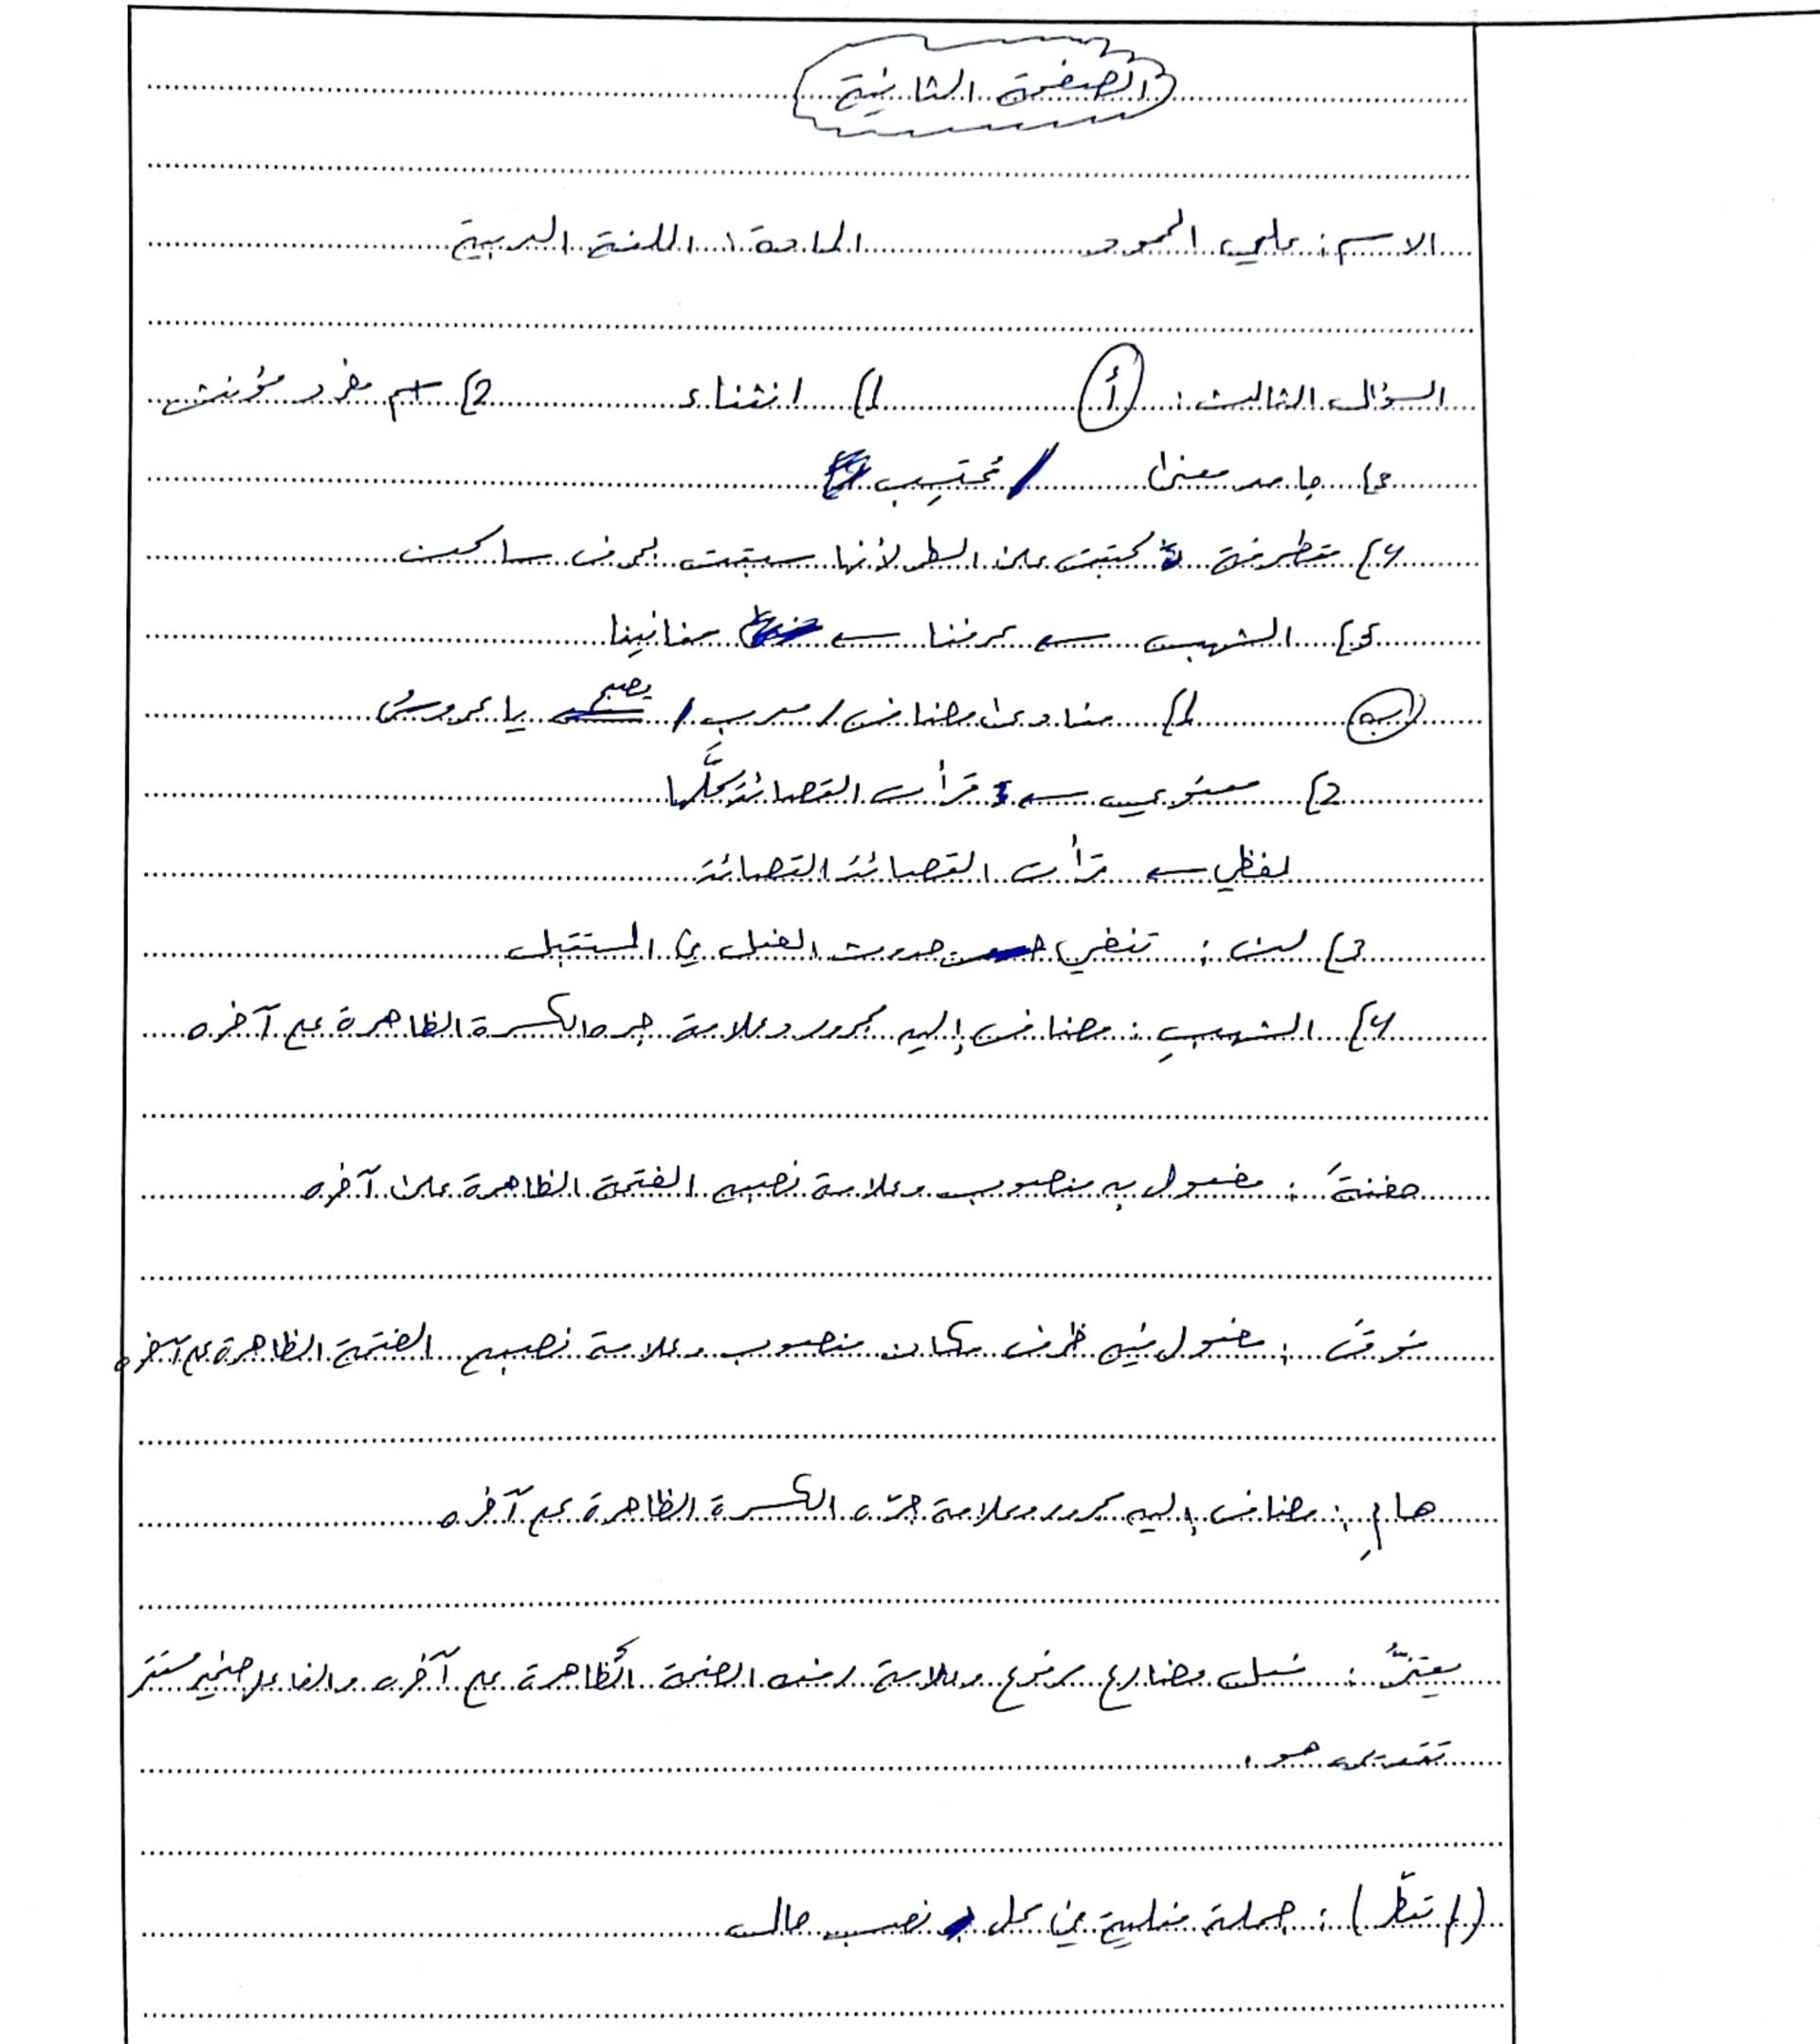 الصفحة الثانية
الاسم: علي المحمود المادة: اللغة العربية
السؤال الثالث: أ 1) انثناء 2) اسم مفرد مؤنث
3) جامد معنى / مُحتسِب
4) متطرفة كتبت على السطر لأنها سبقت بحرف ساكن
5) الشهب ← عرفنا ← مغانينا
ب 1) منادى مضاف / معرب / يصبح يا عروسُ
2) معنوي ← قرأت القصائدَ كلَّها
لفظي ← قرأت القصائد القصائد
3) لن: تنفي حدوث الفعل في المستقبل
4) الشهبِ: مضاف إليه مجرور وعلامة جره الكسرة الظاهرة على آخره
حفنةَ: مفعول به منصوب وعلامة نصبه الفتحة الظاهرة على آخره
فوقَ: مفعول فيه ظرف مكان منصوب وعلامة نصبه الفتحة الظاهرة على آخره
هامِ: مضاف إليه مجرور وعلامة جرّه الكسرة الظاهرة على آخره
يعتزُّ: فعل مضارع مرفوع وعلامة رفعه الضمة الظاهرة على آخره والفاعل ضمير مستتر
تقديره هو.
(): جملة فعلية في محل نصب حال